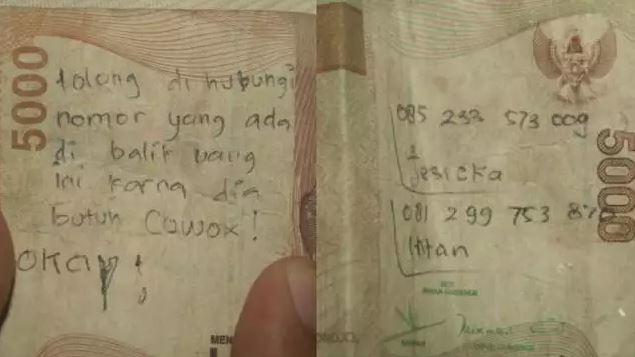 5000
tolong di hubungi
nomor yang ada
di balik uang
ini karna dia
butuh Cowox!
OKAY!
MEN
085 233 573 009
Jesicka
081 299 753
Intan
5000